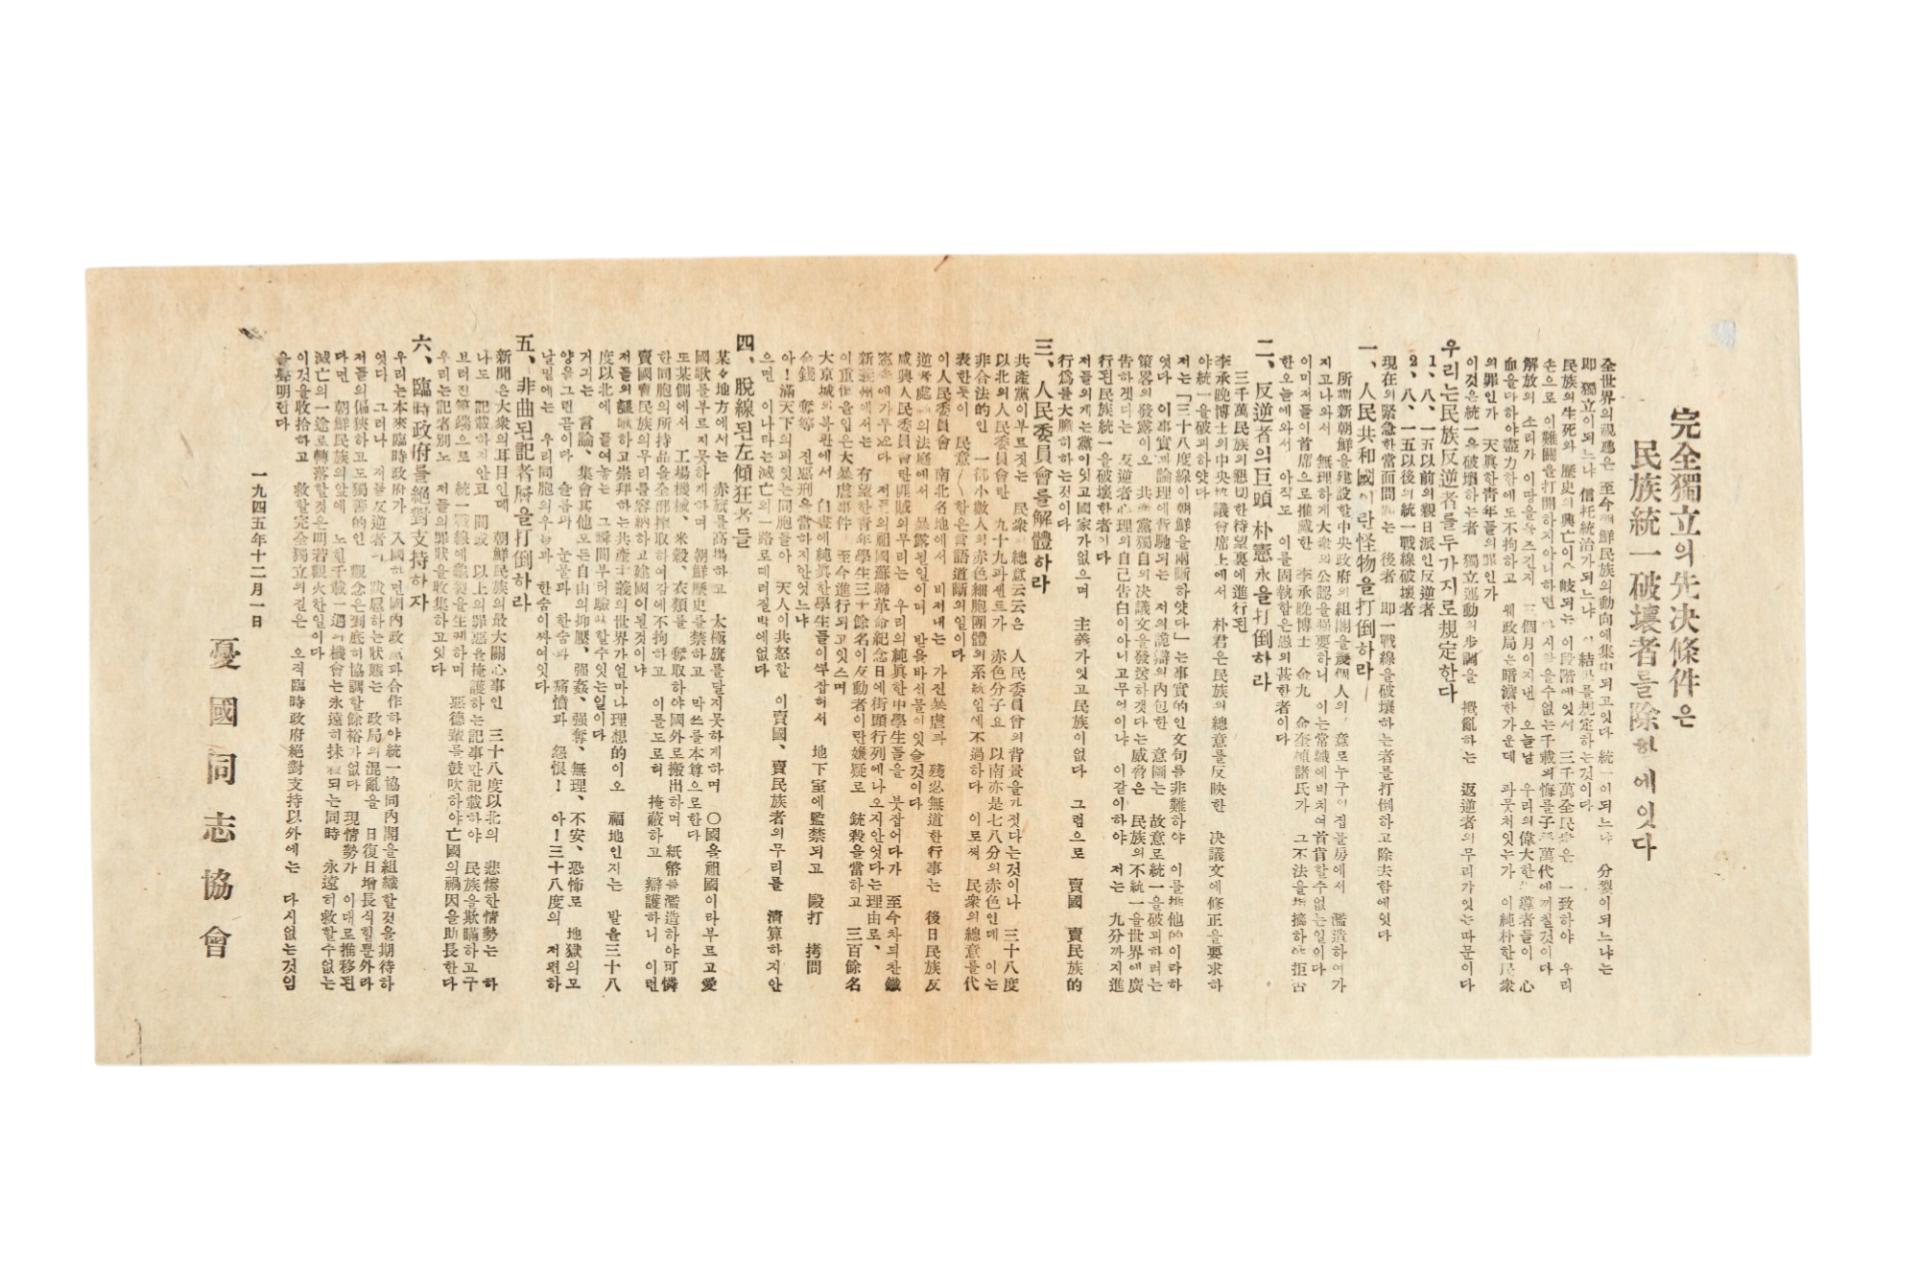 完全獨立의先決條件은
民族統一破壞者를除하에잇다
全世界의視聽은 至今朝鮮民族의動向에集中되고잇다 統一이되느냐 分裂이되느냐는
即 獨立이되느냐 信托統治가되느냐 結果를規定하는것이다
民族의生死와 歷史의興亡이 岐되는 이段階에잇서 三千萬全民衆은 一致하야 우리
손으로 이難關을打開하지아니하면 다시할수없는千載의悔를子孫萬代에끼칠것이다
解放의 소리가 이땅을 三個月이지낸 오늘날 우리의偉大한導者들이 心
血을다하야盡力함에도不拘하고 웨政局은暗澹한가운데 이純朴한民衆
의罪인가 天眞한青年들의罪인가
이것은統一을破壞하는者 獨立運動의步調을 攪亂하는 返逆者의무리가잇는따문이다
우리는民族反逆者를두가지로規定한다
1、八、一五以前의親日派인反逆者
2、八、一五以後의統一戰線破壞者
現在의緊急한當面問題는 後者 即一戰線을破壞하는者를打倒하고除去함에잇다
一、人民共和國이란怪物을打倒하라
所謂新朝鮮을建設할中央政府의組閣을幾個人의 意로누구 집房에서 濫造하여가
지고나와서 無理하게大衆의公認을强要하니 이는常識에비치여首肯할수없는일이다
이미저들이首席으로推戴한 李承晩博士 金九 金奎植諸氏가 그不法을指摘하야拒否
한오늘에와서 아직도 이를固執함은愚의甚한者이다
二、反逆者의巨頭 朴憲永을打倒하라
三千萬民族의懇切한待望裏에進行된
李承晩博士의中央協議會席上에서 朴君은民族의總意를反映한 決議文에修正을要求하
야統一을破괴하얏다
저는「三十八度線이朝鮮을兩斷하얏다」는事實的인文句를非難하야 이를排他的이라하
엿다 이事實과論理에背馳되는 저의詭辯의內包한 意圖는 故意로統一을破괴하려는
策略의發露이오 共產黨獨自의決議文을發送하겟다는威脅은 民族의不統一을世界에廣
告하겟다는 反逆者心理의自己告白이아니고무엇이냐 이같이하야 저는 九分까지進
行된民族統一을破壞한者이다
저들의게는黨이잇고國家가없으며 主義가잇고民族이없다 그럼으로 賣國 賣民族的
行爲를大膽히하는것이다
三、人民委員會를解體하라
共產黨이부르짓는 民衆의總意云云은 人民委員會의背景을가젓다는것이나 三十八度
以北의人民委員會란 九十九파센트가 赤色分子요 以南亦是七八分의赤色인데 이는
非合法的인 一部小數人의赤色細胞團體의系統임에不過하다 이로써 民衆의總意를代
表한듯이 民意 함은言語道斷의일이다
이人民委員會 南北各地에서 비저내는 가진暴虐과 殘忍無道한行事는 後日民族反
逆者處斷의法庭에서 暴露될일이며 발을바신물이잇슬것이다
咸興人民委員會란匪賊의무리는 우리의純眞한中學生들을 붓잡어다가 至今차듸찬鐵
窓속에가두엇다 저들의祖國蘇聯革命紀念日에街頭行列에나오지안엇다는理由로、
新義州에서는 有望한青年學生三十餘名이反動者이란嫌疑로 銃殺을當하고 三百餘名
이重傷을입은大暴虐事件 至今進行되고잇스며
大京城의복판에서 白晝에純眞한學生들이부잡혀서 地下室에監禁되고 毆打 拷問
金錢 奪等 진惡刑을當하지안엇느냐
아!滿天下의피잇는同胞들아 天人이共怒할 이賣國、賣民族者의무리를 清算하지안
으면 이나라는滅亡의一路로떠러질박에없다
四、脫線된左傾狂者들
某々地方에서는 赤旗를高場하고 太極旗를달지못하게하며 〇國을祖國이라부르고愛
國歌를부르지못하게하며 朝鮮歷史를禁하고 막쓰를本尊으로한다
또某側에서 工場機械、米穀、衣類를 奪取하야國外로搬出하며 紙幣를濫造하야可憐
한同胞의所持品을全部搾取하여감에不拘하고 이를도로혀 掩蔽하고 辯護하니 이런
賣國賣民族의무리를容納하고建國이될것이냐
저들의謳歌하고崇拜하는共產主義의世界가얼마나理想的이오 福地인지는 발을三十八
度以北에 드려놋는 그瞬間부터驗할수잇는일이다
거긔는 言論、集會其他모든自由의抑壓、强姦、强奪、無理、不安、恐怖로 地獄의모
양을그련곧이다 슬픔과 눈물과 한숨과 痛憤과 怨恨! 아!三十八度의 저편하
날밑에는 우리同胞의우름과 한숨이싸여잇다
五、非曲된記者層을打倒하라
新聞은大衆의耳目인데 朝鮮民族의最大關心事인 三十八度以北의 悲慘한情勢는 하
나도 記載하지안코 間或 以上의罪惡을掩護하는記事만記載하야 民族을欺瞞하고구
브러진筆端으로 統一戰線에龜裂을生케하며 惡德輩를鼓吹하야亡國의禍因을助長한다
우리는記者別노 저들의罪狀을收集하고잇다
六、臨時政府를絕對支持하자
우리는本來臨時政府가 入國하면國內政黨과合作하야統一協同內閣을組織할것을期待하
엿다 그러나 저들反逆者 跋扈하는狀態는 政局의混亂을 日復日增長식힐뿐外라
저들의偏狹하고도獨善的인 觀念은到底히協調할餘裕가없다 現情勢가 이대로推移된
다면 朝鮮民族의앞에 노힌千載一遇의機會는永遠히抹殺되는同時 永遠히救할수없는
滅亡의一途로轉落할것은明若觀火한일이다
이것을收拾하고 救할完全獨立의길은 오직臨時政府絕對支持以外에는 다시없는것임
을聲明한다
一九四五年十二月一日
憂國同志協會